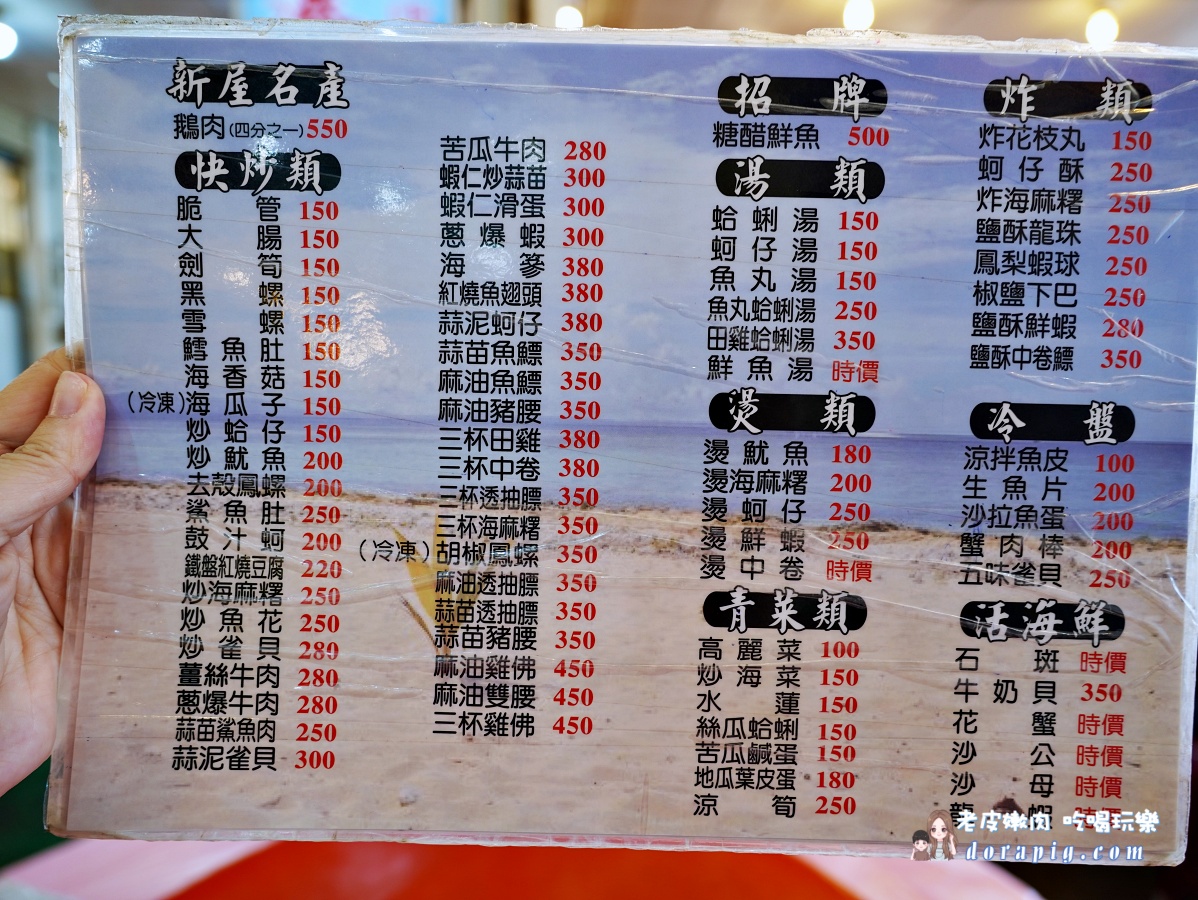 新屋名產
鵝肉(四分之一)550
快炒類
脆管 150
大腸 150
劍筍 150
黑螺 150
雪螺 150
鱈魚肚 150
海香菇 150
(冷凍)海瓜子 150
炒蛤仔 150
炒魷魚 200
去殼鳳螺 200
鯊魚肚 250
鼓汁蚵 200
鐵盤紅燒豆腐 220
炒海麻糬 250
炒魚花 250
炒雀貝 280
薑絲牛肉 280
蔥爆牛肉 280
蒜苗鯊魚肉 250
蒜泥雀貝 300
苦瓜牛肉 280
蝦仁炒蒜苗 300
蝦仁滑蛋 300
蔥爆蝦 300
海蔘 380
紅燒魚翅頭 380
蒜泥蚵仔 380
蒜苗魚鰾 350
麻油魚鰾 350
麻油豬腰 350
三杯田雞 380
三杯中卷 380
三杯透抽膘 350
三杯海麻糬 350
(冷凍)胡椒鳳螺 350
麻油透抽膘 350
蒜苗透抽膘 350
蒜苗豬腰 350
麻油雞佛 450
麻油雙腰 450
三杯雞佛 450
招牌
糖醋鮮魚 500
湯類
蛤蜊湯 150
蚵仔湯 150
魚丸湯 150
魚丸蛤蜊湯 250
田雞蛤蜊湯 350
鮮魚湯 時價
燙類
燙魷魚 180
燙海麻糬 200
燙蚵仔 250
燙鮮蝦 250
燙中卷 時價
青菜類
高麗菜 100
炒海菜 150
水蓮 150
絲瓜蛤蜊 150
苦瓜鹹蛋 150
地瓜葉皮蛋 180
涼筍 250
炸類
炸花枝丸 150
蚵仔酥 250
炸海麻糬 250
鹽酥龍珠 250
鳳梨蝦球 250
椒鹽下巴 250
鹽酥鮮蝦 280
鹽酥中卷鰾 350
冷盤
涼拌魚皮 100
生魚片 200
沙拉魚蛋 200
蟹肉棒 200
五味雀貝 250
活海鮮
石斑 時價
牛奶貝 350
花蟹 時價
沙公 時價
沙母 時價
龍蝦 時價
老皮嫩肉 吃喝玩樂
dorapig.com